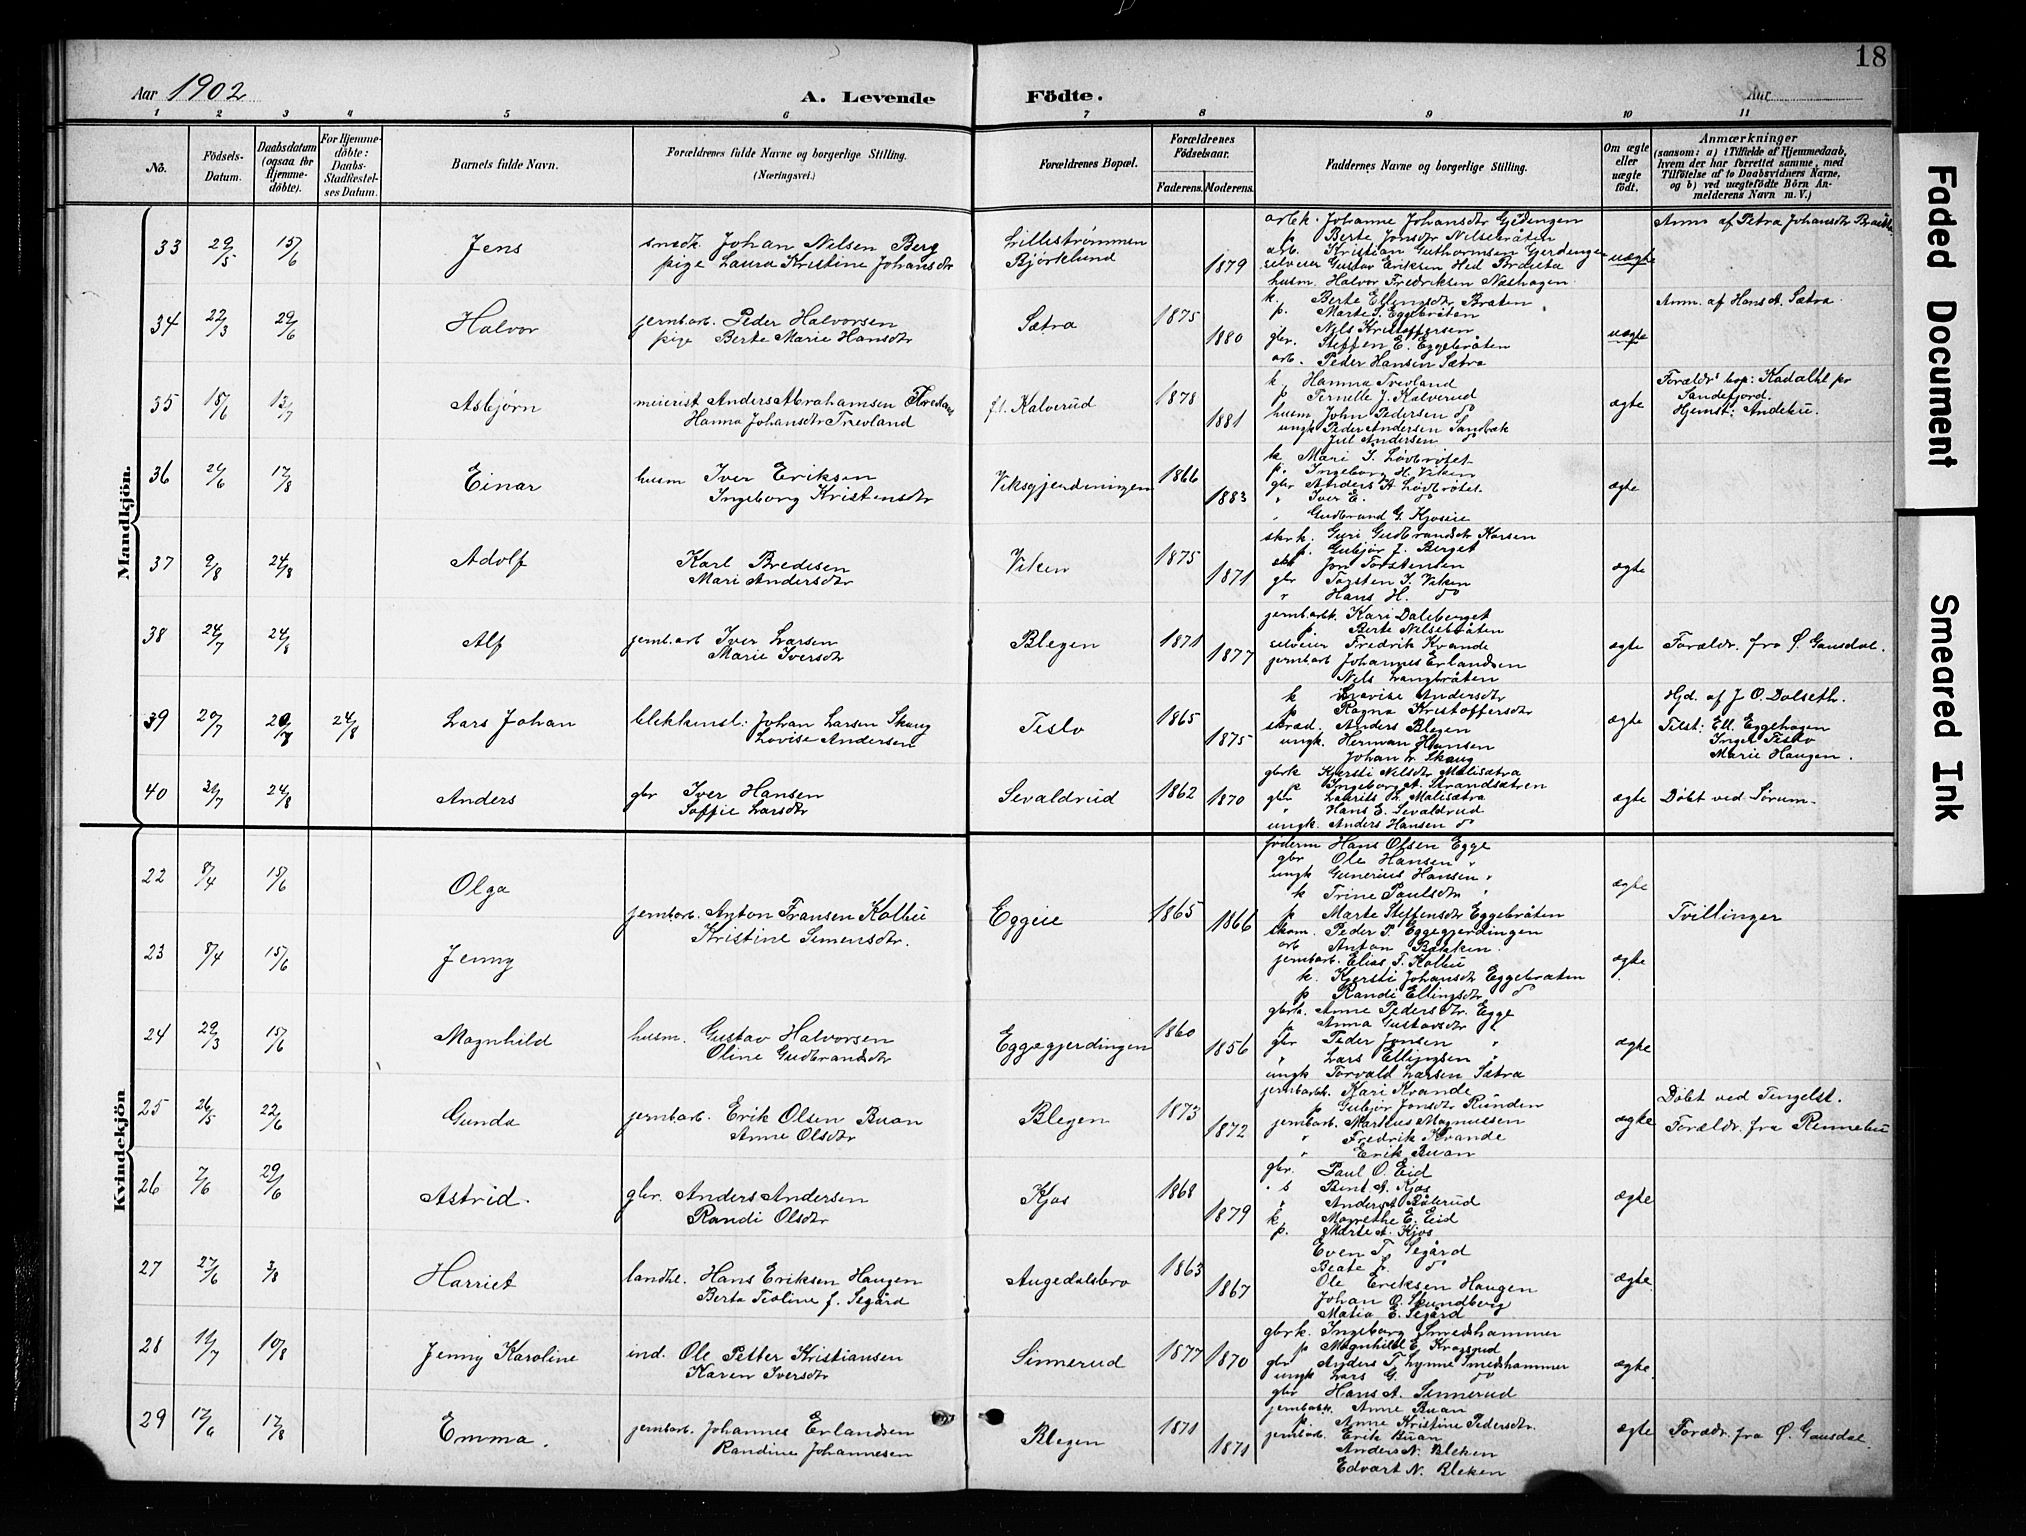 18
Aar 1902
A. Levende Fødte.
Aar
1 2 3 4 5 6 7 8 9 10 11
No.
Födsels-Datum.
Daabsdatum (ogsaa for Hjemmedöbte).
For Hjemmedöbte: Daabs-Stadfæstelses Datum.
Barnets fulde Navn.
Forældrenes fulde Navne og borgerlige Stilling. (Næringsvei.)
Forældrenes Bopæl.
Forældrenes Födselsaar.
Faderens. Moderens.
Faddernes Navne og borgerlige Stilling.
Om ægte eller uægte födt.
Anmærkninger
(saasom: a) i Tilfælde af Hjemmedaab,
hvem der har forrettet samme, med
Tilföielse af to Daabsvidners Navne,
og b) ved uægtefödte Börn An-
melderens Navn m. V.)
Mandkjön.
33 29/5 15/6 Jens
smedk. Johan Nilsen Berg
pige Laura Kristine Johansdtr
Lillestrømmen
Bjørklund
1879
arbk. Johanne Johansdtr Gjerdingen
p Berte Jonsdtr Nilsebråten
arb. Kristian Guthormsen Gjerdingen
selveier Gustav Eriksen Hed
husm. Halvor Fredriksen Næshagen
uægte
Anm af Petra Johansdtr
34 22/3 29/6 Halvor
jernbarb. Peder Halvorsen
pige Berte Marie Hansdtr
Sætra
1875
1880
k. Berte Ellingsdtr Bråten
p. Marte S. Eggebråten
Nils Kristoffersen
gbr. Steffen E. Eggebråten
arb. Peder Hansen Sætra
uægte
Anm. af Hans A. Sætra.
35 18/6 13/7 Asbjørn
meierist Anders Abrahamsen
Hanna Johansdtr Trevland
f.t. Kalverud
1878
1881
k, Hanna Trevland
p Pernille J. Kalverud
husm John Pedersen do
ungk Peder Andersen Sandbæk
Jul Andersen do
ægte
Forældr' bop: Kadalht pr
Sandefjord.
Hjemst: Andebu.
36 24/6 17/8 Einar
husm Iver Eriksen
Ingeborg Kristensdtr
Viksgjerdeningen
1866
1883
k Mari I. Løvbrøtet
p. Ingeborg H. Viken
gbr Anders A Løvbrøtet
" Iver E. do
" Gudbrand G. Kjoseie
ægte
37 9/8 24/8 Adolf
Karl Bredesen
Mari Andersdtr
Viken
1875
1871
skr k. Guri Gudbrandsdtr Karsen
p. Gubjør J. Berget
Jon Torstensen
gbr Torsten I. Viken
" Hans H. do
ægte
38 24/7 24/8 Alf
jernb.arb Iver Larsen
Marie Iversdtr
Blegen
1871
1877
jernbarbk. Kari Daleberget
p. Berte Nilsebråten
selveier Fredrik Kvande
jernbarb Johannes Erlandsen
Nils Langbråten
ægte
Forældr. fra Ø. Gausdal.
39 20/7 20/7 24/8 Lars Johan
blekkensl: Johan Larsen Skaug
Lovise Andersen
Teslo
1865
1875
k Lovise Andersdtr
p Ragna Kristoffersdtr
skræd. Anders Blegen
ungk. Herman Hansen
Johan L. Skaug
ægte
Hjd. af J. O. Dolseth.
Tilst: Ell. Eggehagen
Inga Teslo
Marie Haugen.
40 21/7 24/8 Anders
gbr Iver Hansen
Soffie Larsdtr
Sevaldrud
1862
1870
gbrk Kjersti Nilsdtr Malisætra
p Ingeborg A. Strandsætren
gbr Laurits L. Malisætra
" Hans E. Sevaldrud
ungk. Anders Hansen do
ægte
Døbt ved Sørum.
Kvindekjön
22 8/4 15/6 Olga
23 8/4 15/6 Jenny
jernbarb. Anton Fransen Kolbu
Kristine Simensdtr.
Eggeie
1865
1866
føderm Hans Olsen Egge
gbr Ole Hansen "
ungk Gunerius Hansen "
k Trine Paulsdtr "
p Marte Steffensdtr Eggebråten
skom. Peder P. Eggegjerdingen
arb Anton Bakken.
jernbarb. Elias F. Kolbu
k. Kjersti Johansdtr Eggebraten
p Randi Ellingsdtr do
ægte
ægte
Tvillinger
24 29/3 15/6 Magnhild
husm. Gustav Halvorsen
Oline Gudbrandsdtr
Eggegjerdingen
1860
1856
gbrk. Anne Pedersdtr. Egge
p Anna Gustavsdtr "
gbr Peder Jonsen "
" Lars Ellingsen "
ungk Torvald Larsen Sætra
ægte
25 26/5 22/6 Gunda
jernbarb. Erik Olsen Buan
Anne Olsdtr
Blegen
1873
1872
jernbarbk. Kari Kvande
p Gubjør Jonsdtr Runden
jernbarb. Martius Magnussen
" Fredrik Kvande
" Erik Buan
ægte
Døbt ved Tingelst.
Forældr. fra Rennebu
26 7/6 29/6 Astrid.
gbr. Anders Andersen
Randi Olsdtr
Kjos
1868
1879
gbr. Paul O. Eid
. s Bent A. Kjos
" Anders A Bålerud
k. Magrethe E. Eid
p. Marte A. Kjos
ægte
27 27/6 3/8 Harriet
landh. Hans Eriksen Haugen
Berta Teoline f. Segård
Augedalsbro
1863
1867
Even T. Segård
Beate f. do
Ole Eriksen Haugen
Johan O. Skundberg
Matia E. Segård
ægte
28 11/7 10/8 Jenny Karoline
ind. Ole Petter Kristiansen
Karen Iversdtr
Sinnerud
1877
1870
gbrk. Ingeborg Smedshammer
p Magnhild E. Krogsrud
gbr Anders T. Lynne Smedshammer
ungk Lars G. do
gbr Hans A. Sinnerud
ægte.
29 17/6 17/8 Emma.
jernbarb. Johannes Erlandsen
Randine Johannesen
Blegen
1871
1871
jernbarbk. Anne Buan
p. Anne Kristine Pedersdtr.
jernbarb. Erik Buan
Anders N. Bleken
Edvart N. Bleken
ægte
Forældr. fra Ø. Gausdal.
Faded Document
Smeared Ink